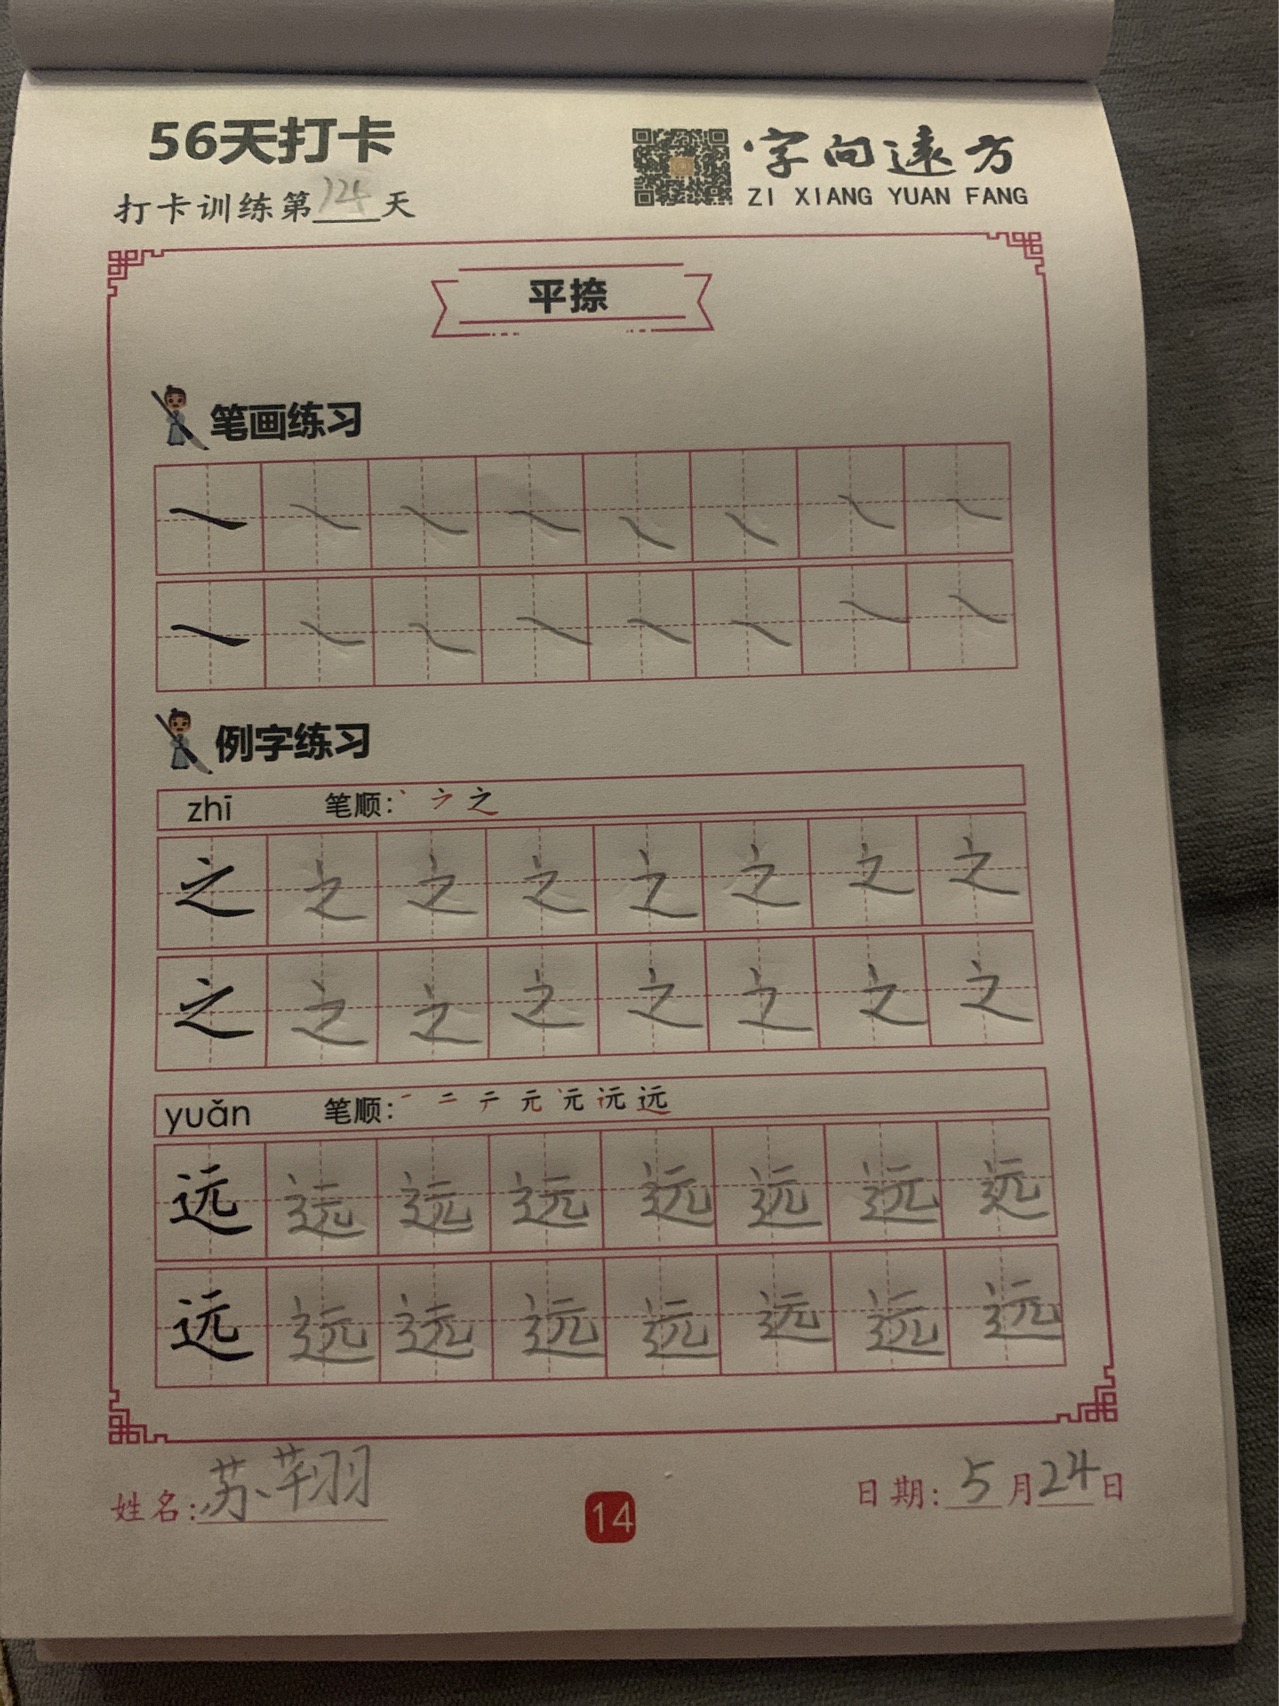 56天打卡
字向遠方
打卡训练第124天
ZI XIANG YUAN FANG
平捺
笔画练习
例字练习
zhī 笔顺: 之
之 之 之 之 之 之 之 之
之 之 之 之 之 之 之 之
yuǎn 笔顺: 一 二 テ 元 元 沅 远
远 远 远 远 远 远 远 远
远 远 远 远 远 远 远 远
姓名: 苏芊羽
14
日期: 5月24日